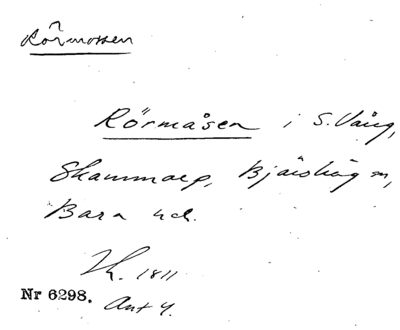 Rörmossen
Rörmåsen i S. Vång,
Skammarp, Bjäršhög sn,
Bara hd.
Th. 1811
Nr 6298. Ant 4.